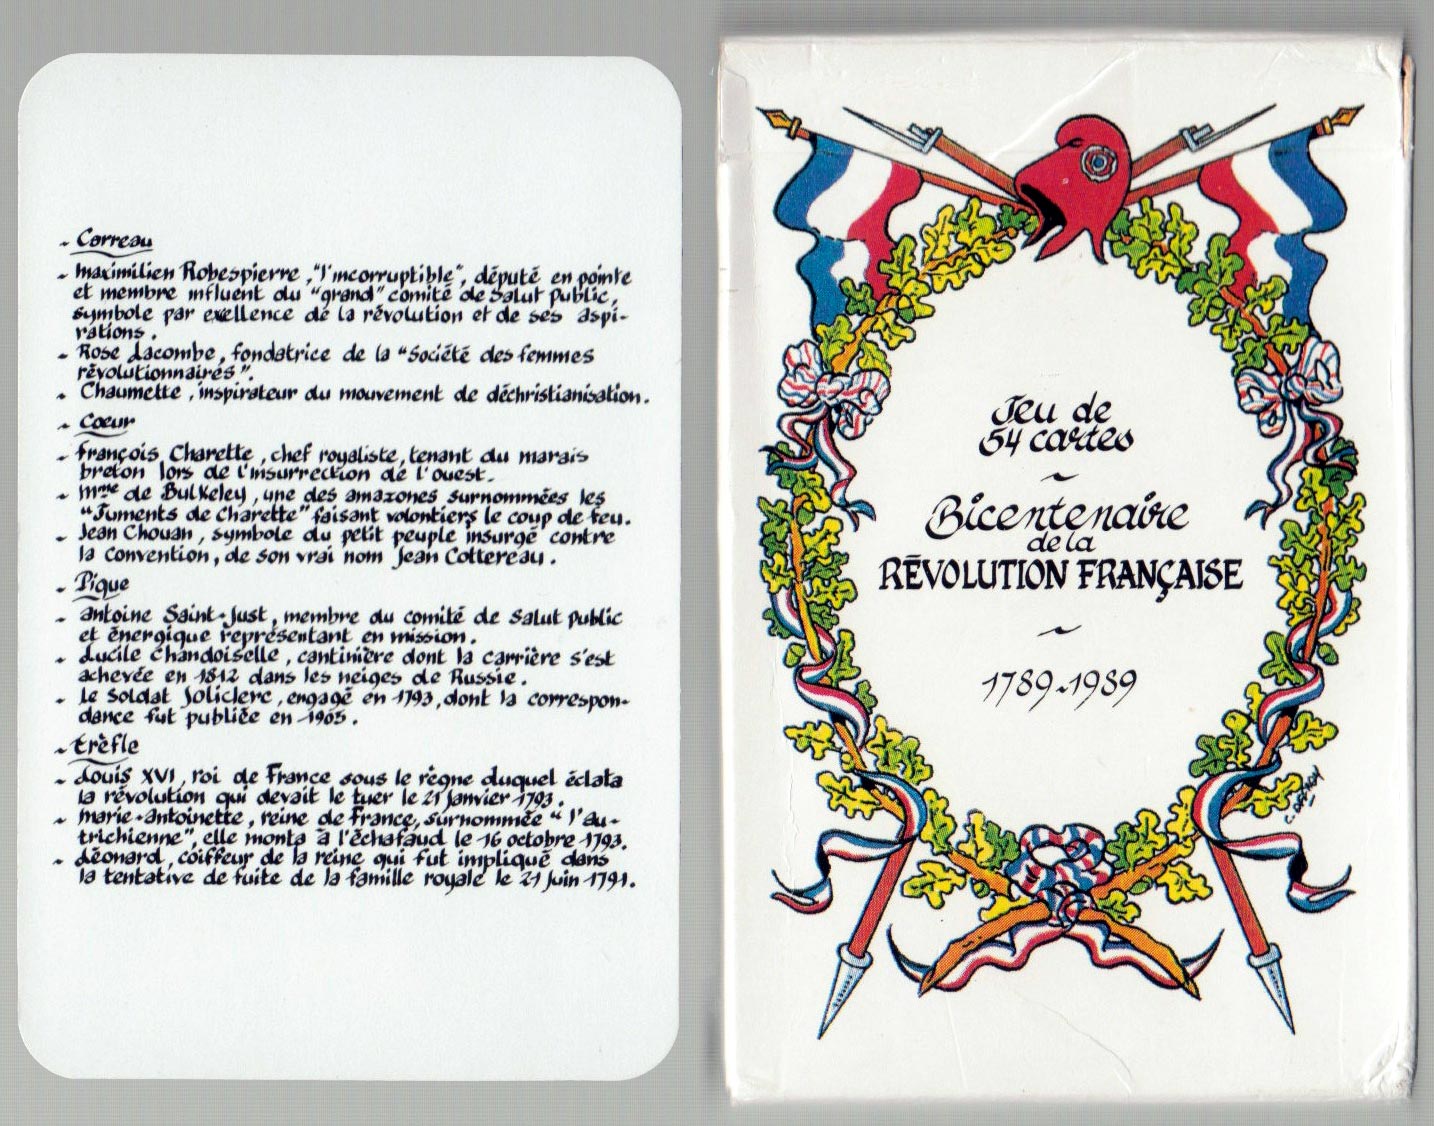 - Carreau
- Maximilien Robespierre, "l'incorruptible", député en pointe
et membre influent du "grand" comité de Salut Public,
symbole par exellence de la révolution et de ses aspi-
rations.
- Rose Lacombe, fondatrice de la "Société des femmes
révolutionnaires".
- Chaumette, inspirateur du mouvement de déchristianisation.
- Coeur
- François Charette, chef royaliste, tenant du marais
breton lors de l'insurrection de l'ouest.
- Mme de Bulkeley, une des amazones surnommées les
"Juments de Charette" faisant volontiers le coup de feu.
- Jean Chouan, symbole du petit peuple insurgé contre
la Convention, de son vrai nom Jean Cottereau.
- Pique
- Antoine Saint-Just, membre du comité de Salut Public
et énergique représentant en mission.
- Lucile Chandoiselle, cantinière dont la carrière s'est
achevée en 1812 dans les neiges de Russie.
- Le Soldat Joliclerc, engagé en 1793, dont la correspon-
dance fut publiée en 1905.
- Trèfle
- Louis XVI, roi de France sous le règne duquel éclata
la révolution qui devait le tuer le 21 Janvier 1793.
- Marie-Antoinette, reine de France, surnommée "l'au-
trichienne", elle monta à l'échafaud le 16 octobre 1793.
- Léonard, coiffeur de la reine qui fut impliqué dans
la tentative de fuite de la famille royale le 21 Juin 1791.
Jeu de
54 cartes
~
Bicentenaire
de la
RÉVOLUTION FRANÇAISE
~
1789~1989